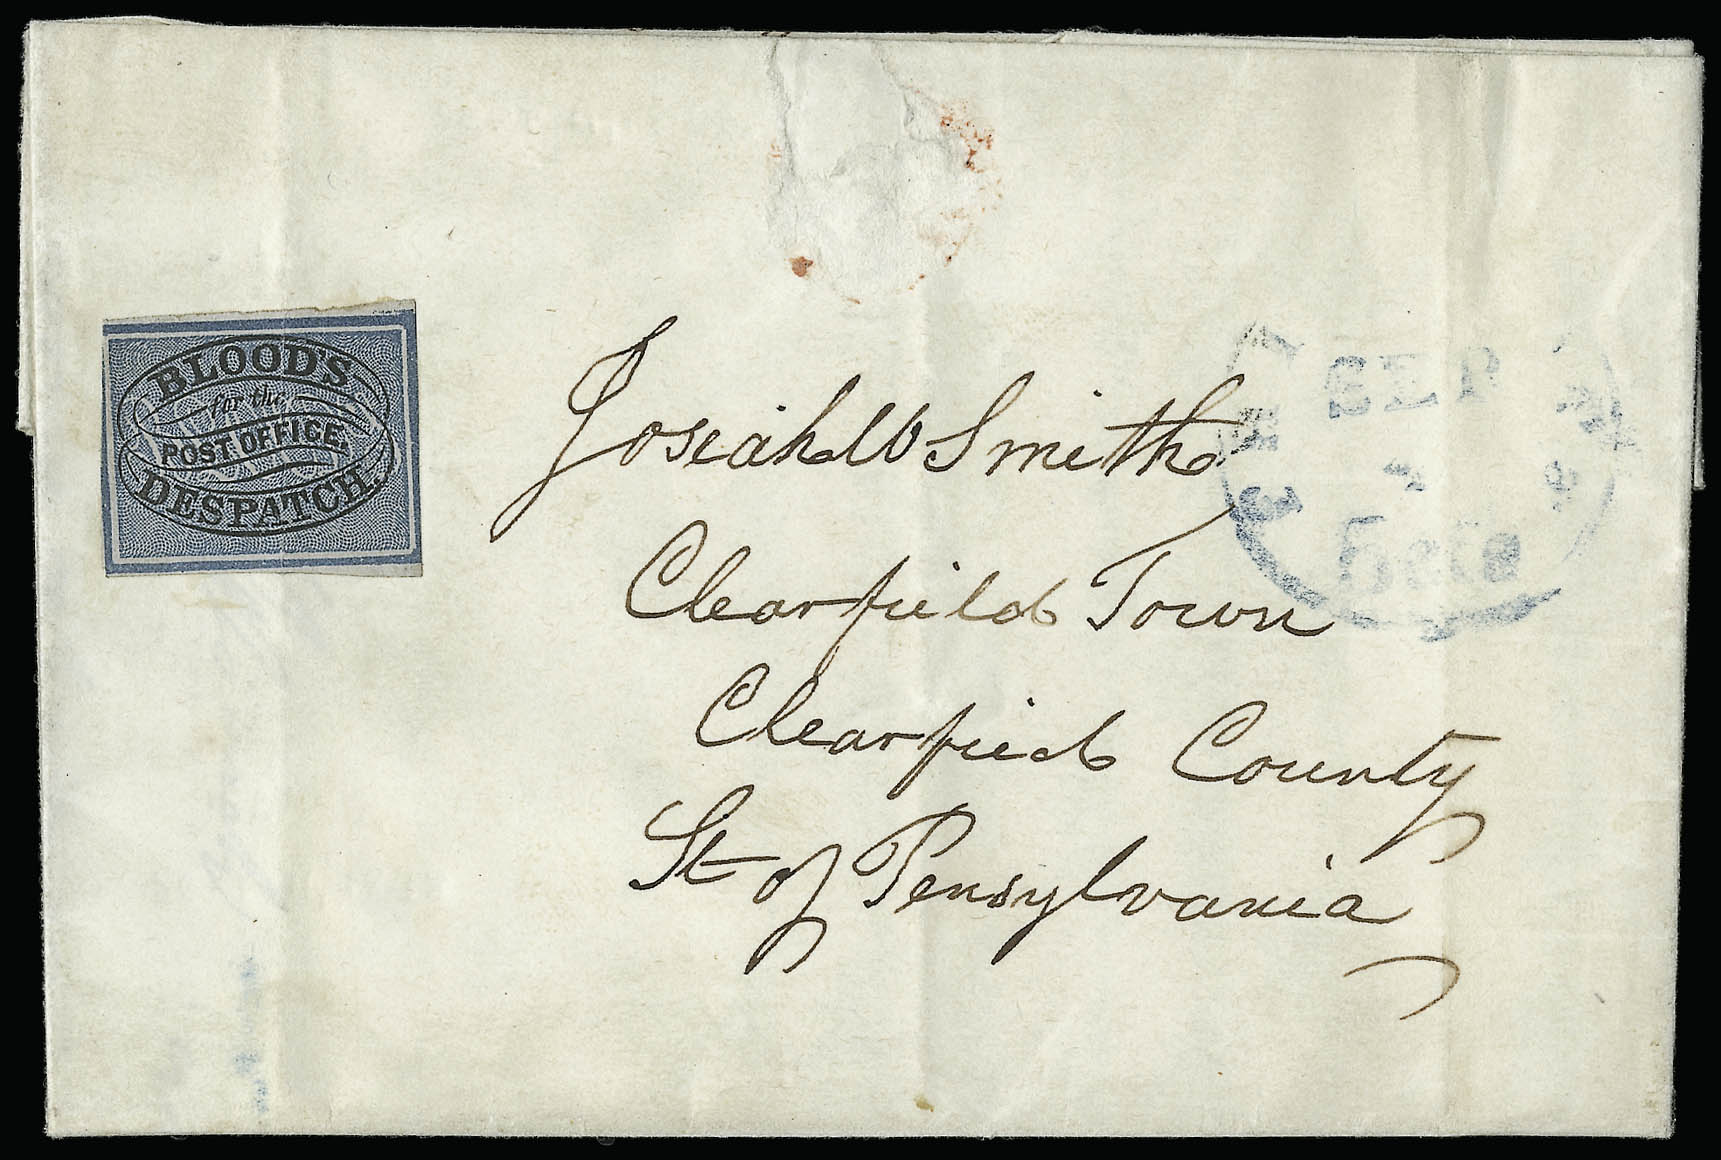 BLOOD'S
for the
POST OFFICE
DESPATCH
Josiah W Smith
Clearfield Town
Clearfied County
St of Pensylvania
5cts